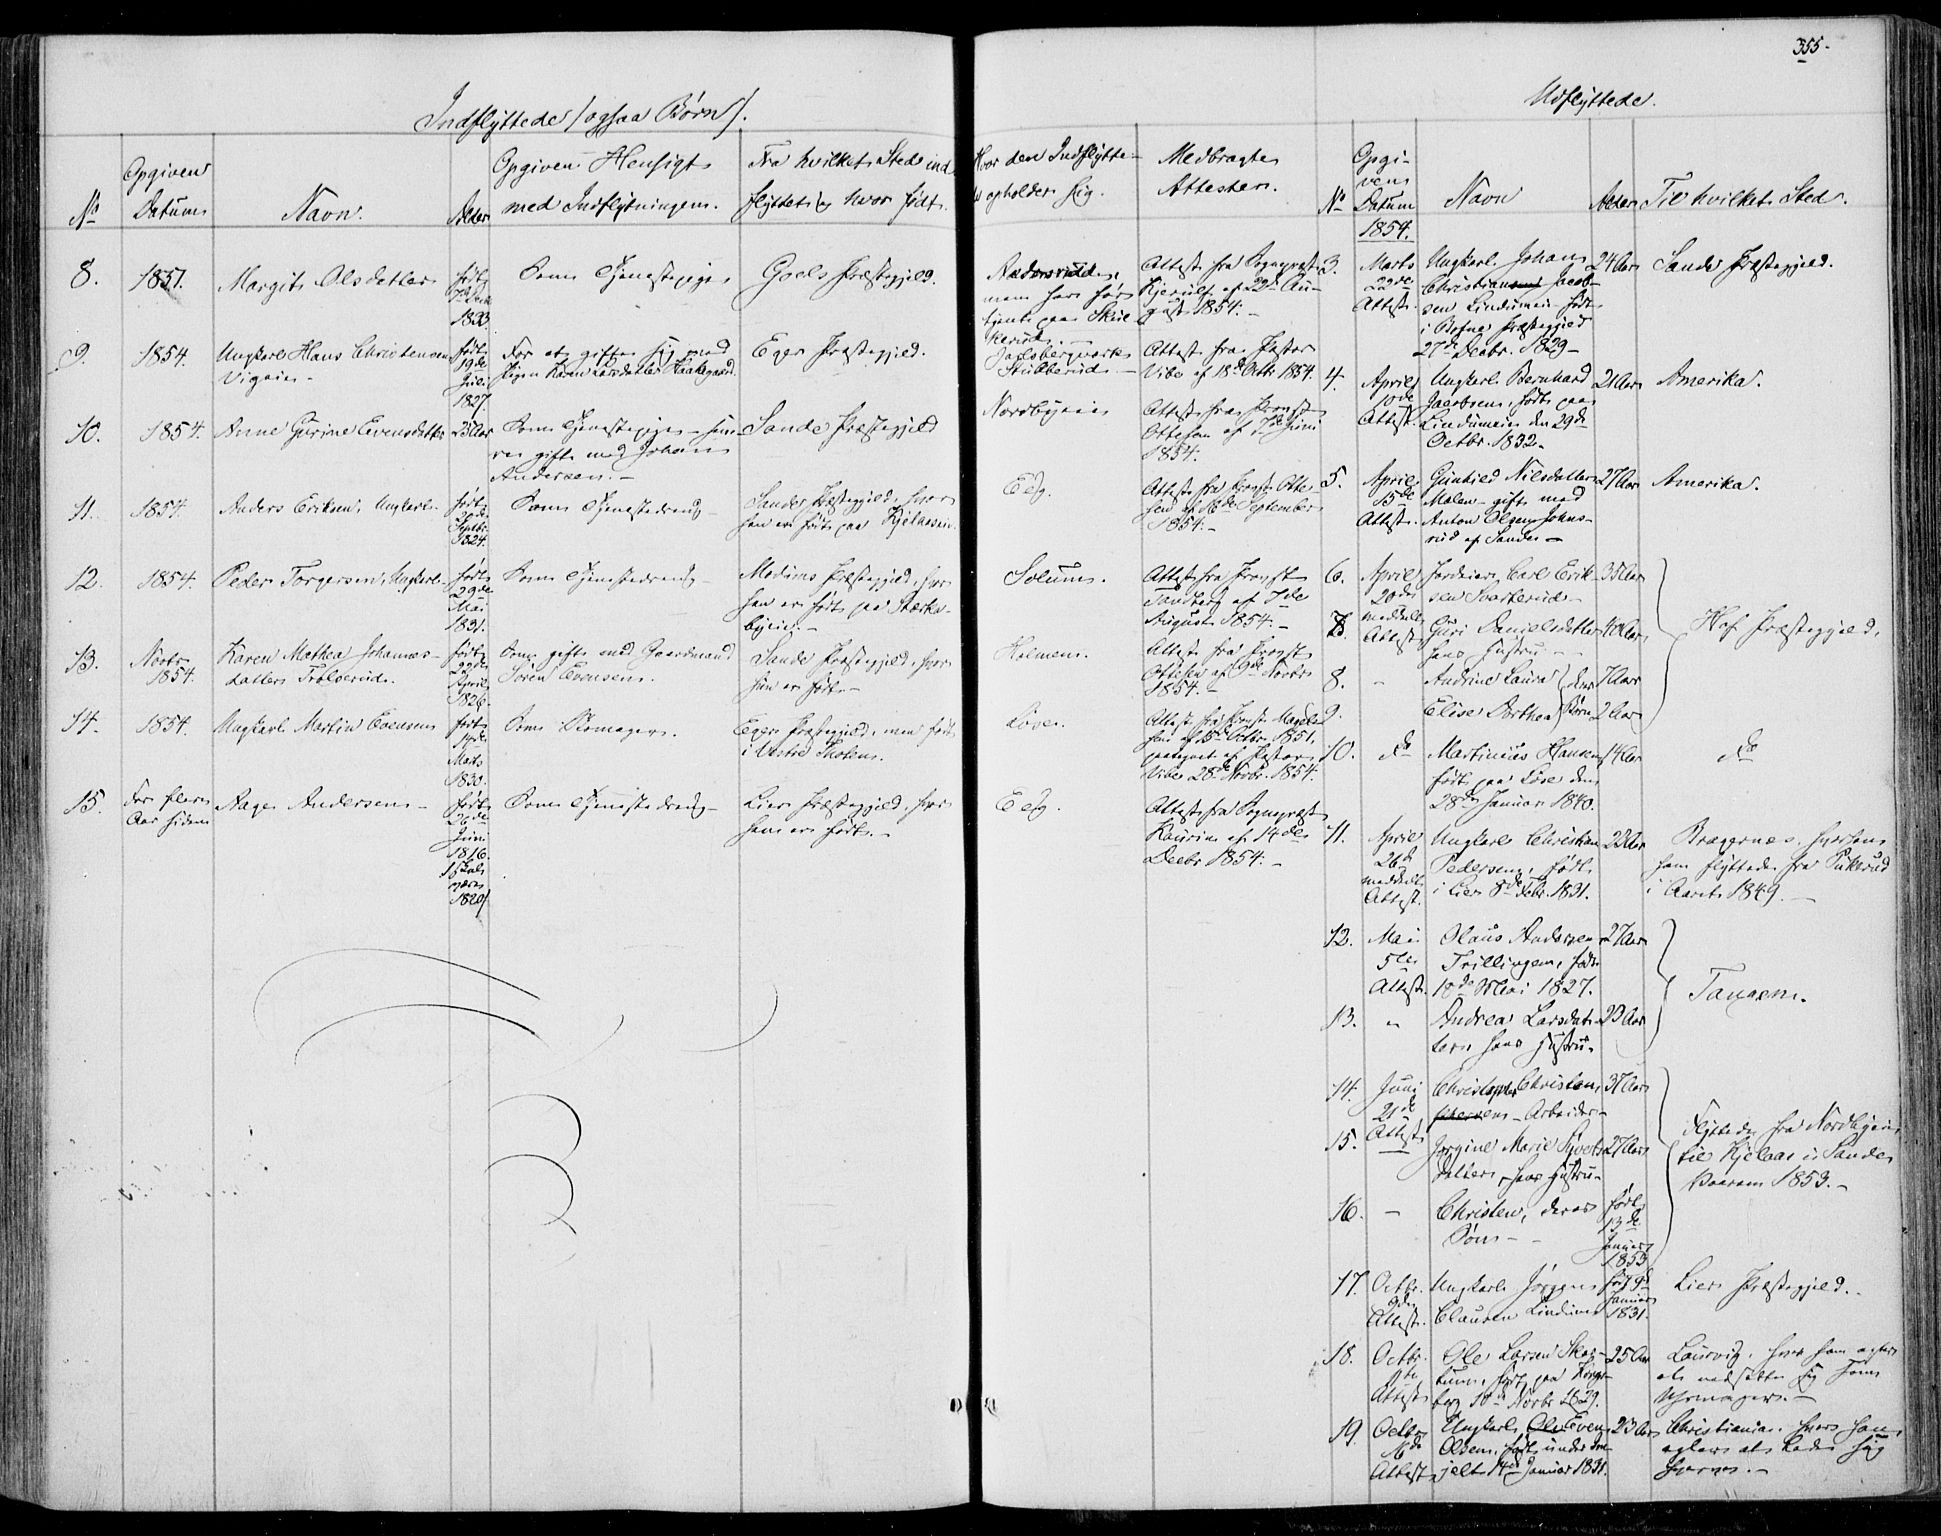 355.
Indflyttede /ogsaa Børn/.
No
Opgiven
Datum
Navn.
Alder
Opgiven Hensigt
med Indflytningen.
Fra hvilket Sted ind
flyttet og hvor født.
Hvor den Indflytte
opholder sig.
Medbragte
Attester.
8.
1851.
Margit Olsdatter
født
1833
Som Tjenestepige
Goels Præstegjeld.
Attest fra Sognepræst
Kjerulf af 22d Au-
gust 1854.
9.
1854.
Ungkarl Hans Christensen
Vigeien
født
19de
Juli
1827.
For at gifte sig med
Pigen Karen Larsdatter Haakegaard.
Eger Præstegjeld.
Jarlsbergverks
Stubberud
Attest fra Pastor
Vibe af 18d Octb 1854.
10.
1854.
Anne Gurine Evensdatter
25 Aar
Som Tjenestepige
gift med Johan
Andersen.
Sande Præstegjeld
Nordbyeie
Attest fra Provst
Ottesen af 17de Juni
1854.
11.
1854.
Anders Eriksen, Ungkarl
født
20de
Septbr
1824.
Som Tjenestedreng
Sande Præstegjeld, hvor
han er født paa Kjelaaseie.
Eeg.
Attest fra Provst Otte-
sen af 16de September
1854.
12.
1854.
Peder Torgersen, Ungkarl
født
29de
Mai
1831.
Som Tjenestedreng
Modums Præstegjeld, hvor
han er født paa Stærke-
byeie.
Solum.
Attest fra Provst
Sandberg af 7de
August 1854.
13.
Novbr
1854.
Karen Mathea Johannes-
datter Trolserud.
født
22de
April
1826.
Som gift med Gaardmand
Søren Evensen.
Sande Præstegjeld, hvor
hun er født.
Holmen.
Attest fra Provst
Ottesen af 9de Novbr
1854.
14.
1854.
Ungkarl Martin Evensen
født
14de
Marts
1830.
Som Skomager.
Eger Præstegjeld, men født
i Vestre Thoten.
Løse.
Attest fra Provst
af 15d Octbr 1851,
paategnet af Pastor
Vibe 28de Novbr. 1854.
15.
For flere
Aar siden
Aage Andersen
født
26de
Juni
1816.
1820/
Som Tjenestedreng
Lier Præstegjeld, hvor
han er født.
Eeg.
Attest fra Sognepræst
Kaurin af 14de
Decbr 1854.
Udflyttede.
No
Opgi-
ven
Datum
1854.
Navn
Alder
Til hvilket Sted.
3.
Marts
22de
Attest.
Ungkarl Johan
Christian Jacob-
sen Lindumeie født
i Præstegjeld
27de Decbr. 1829
24 Aar
Sande Præstegjeld.
4.
April
10de
Attest.
Ungkarl Bernhard
Jacobsen, født paa
Lindumeie den 29de
Octbr. 1832.
21 Aar
Amerika.
5.
April
15de
Attest.
Gunhild Nilsdatter
Malen gift med
Anton Olsen Johns-
rud af Sande
27 Aar
Amerika.
6.
April
20de
meddelt
Attest
Jordeier Carl Erik-
sen Svarterud
35 Aar
7.
Guri Danielsdatter
hans Hustru
40 Aar
Hof Præstegjeld,
8.
Andrine Laura
7 Aar
9.
Elise Dorthea
deres
Børn
2 Aar
10.
do
Martinius Hansen
født paa Løse den
28de Januar 1840.
14 Aar
do
11.
April
26d
meddelt
Attest.
Ungkarl Christian
Pedersen, født
i Lier 8de Febr. 1831.
23 Aar
Bragernes, hvorhen
han flyttede fra Pukerud
i Aaret 1849.
12.
Mai
5te
Attest.
Olaus Andersen
Trillingen, født
18de Mai 1827.
27 Aar
Tangen.
13.
Andrea Larsdat-
ter hans Hustru.
23 Aar
14.
Juni
21de
Attest
Christopher Christen-
sen Arbeider
37 Aar
15.
Jorgine Marie Syvets-
datter, hans Hustru
27 Aar
Flyttede fra Nordbyeie
til Kjelaas i Sande
Vaaren 1853.
16.
Christen, deres
Søn
født
13de
Januar
1853
17.
Octbr.
9de
Attest.
Ungkarl Jørgen
Clausen Lindum
født 9d
Januar
1831.
Lier Præstegjeld.
18.
Octbr.
Attest
Ole Larsen Skog-
tuen, født paa Kongs-
berg 10de Novbr 1829.
25 Aar
Laurvig, hvor han agter
at nedsætte sig som
Uhrmager.
19.
Octbr
16de
Attest
Ungkarl Ole Even
Olsen, født under Im-
jelt 14de Januar 1831.
23 Aar
Christiania, hvor han
agter at lade sig
hverve.